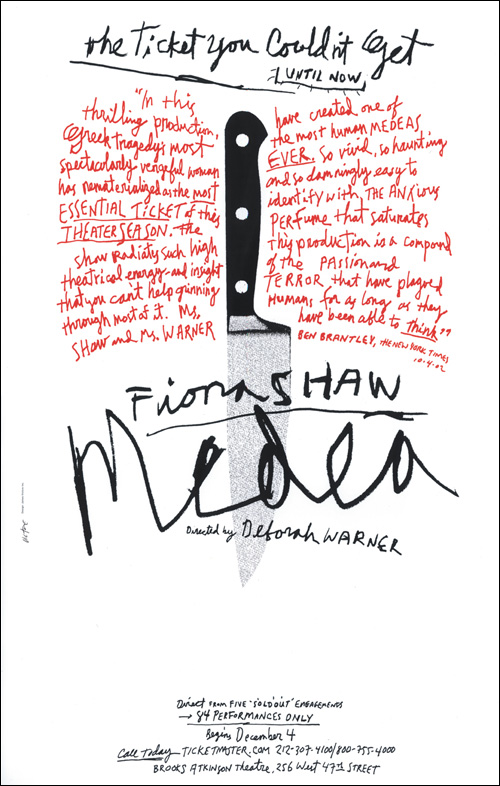 the Ticket you Couldn't Get
UNTIL NOW
"In this
thrilling production,
Greek tragedy's most
spectacularly vengeful woman
has rematerialized as the most
ESSENTIAL TICKET of this
THEATER SEASON. The
show radiates such high
theatrical energy and insight
that you can't help grinning
through most of it. Ms.
SHAW and Ms. WARNER
have created one of
the most human MEDEAS
EVER. So vivid, so haunting
and so damningly easy to
identify with. THE ANXIOUS
PERFUME that saturates
this production is a compound
of the PASSION and
TERROR that have plagued
HUMANS for as long as they
have been able to think"
BEN BRANTLEY, THE NEW YORK TIMES
10.4.02
Fiona SHAW
Medea
Directed by Deborah WARNER
Direct FROM FIVE 'SOLD OUT' ENGAGEMENTS
→ 84 PERFORMANCES ONLY
Begins December 4
Call Today TICKETMASTER.COM 212-307-4100/800-755-4000
BROOKS ATKINSON Theatre, 256 West 47th STREET